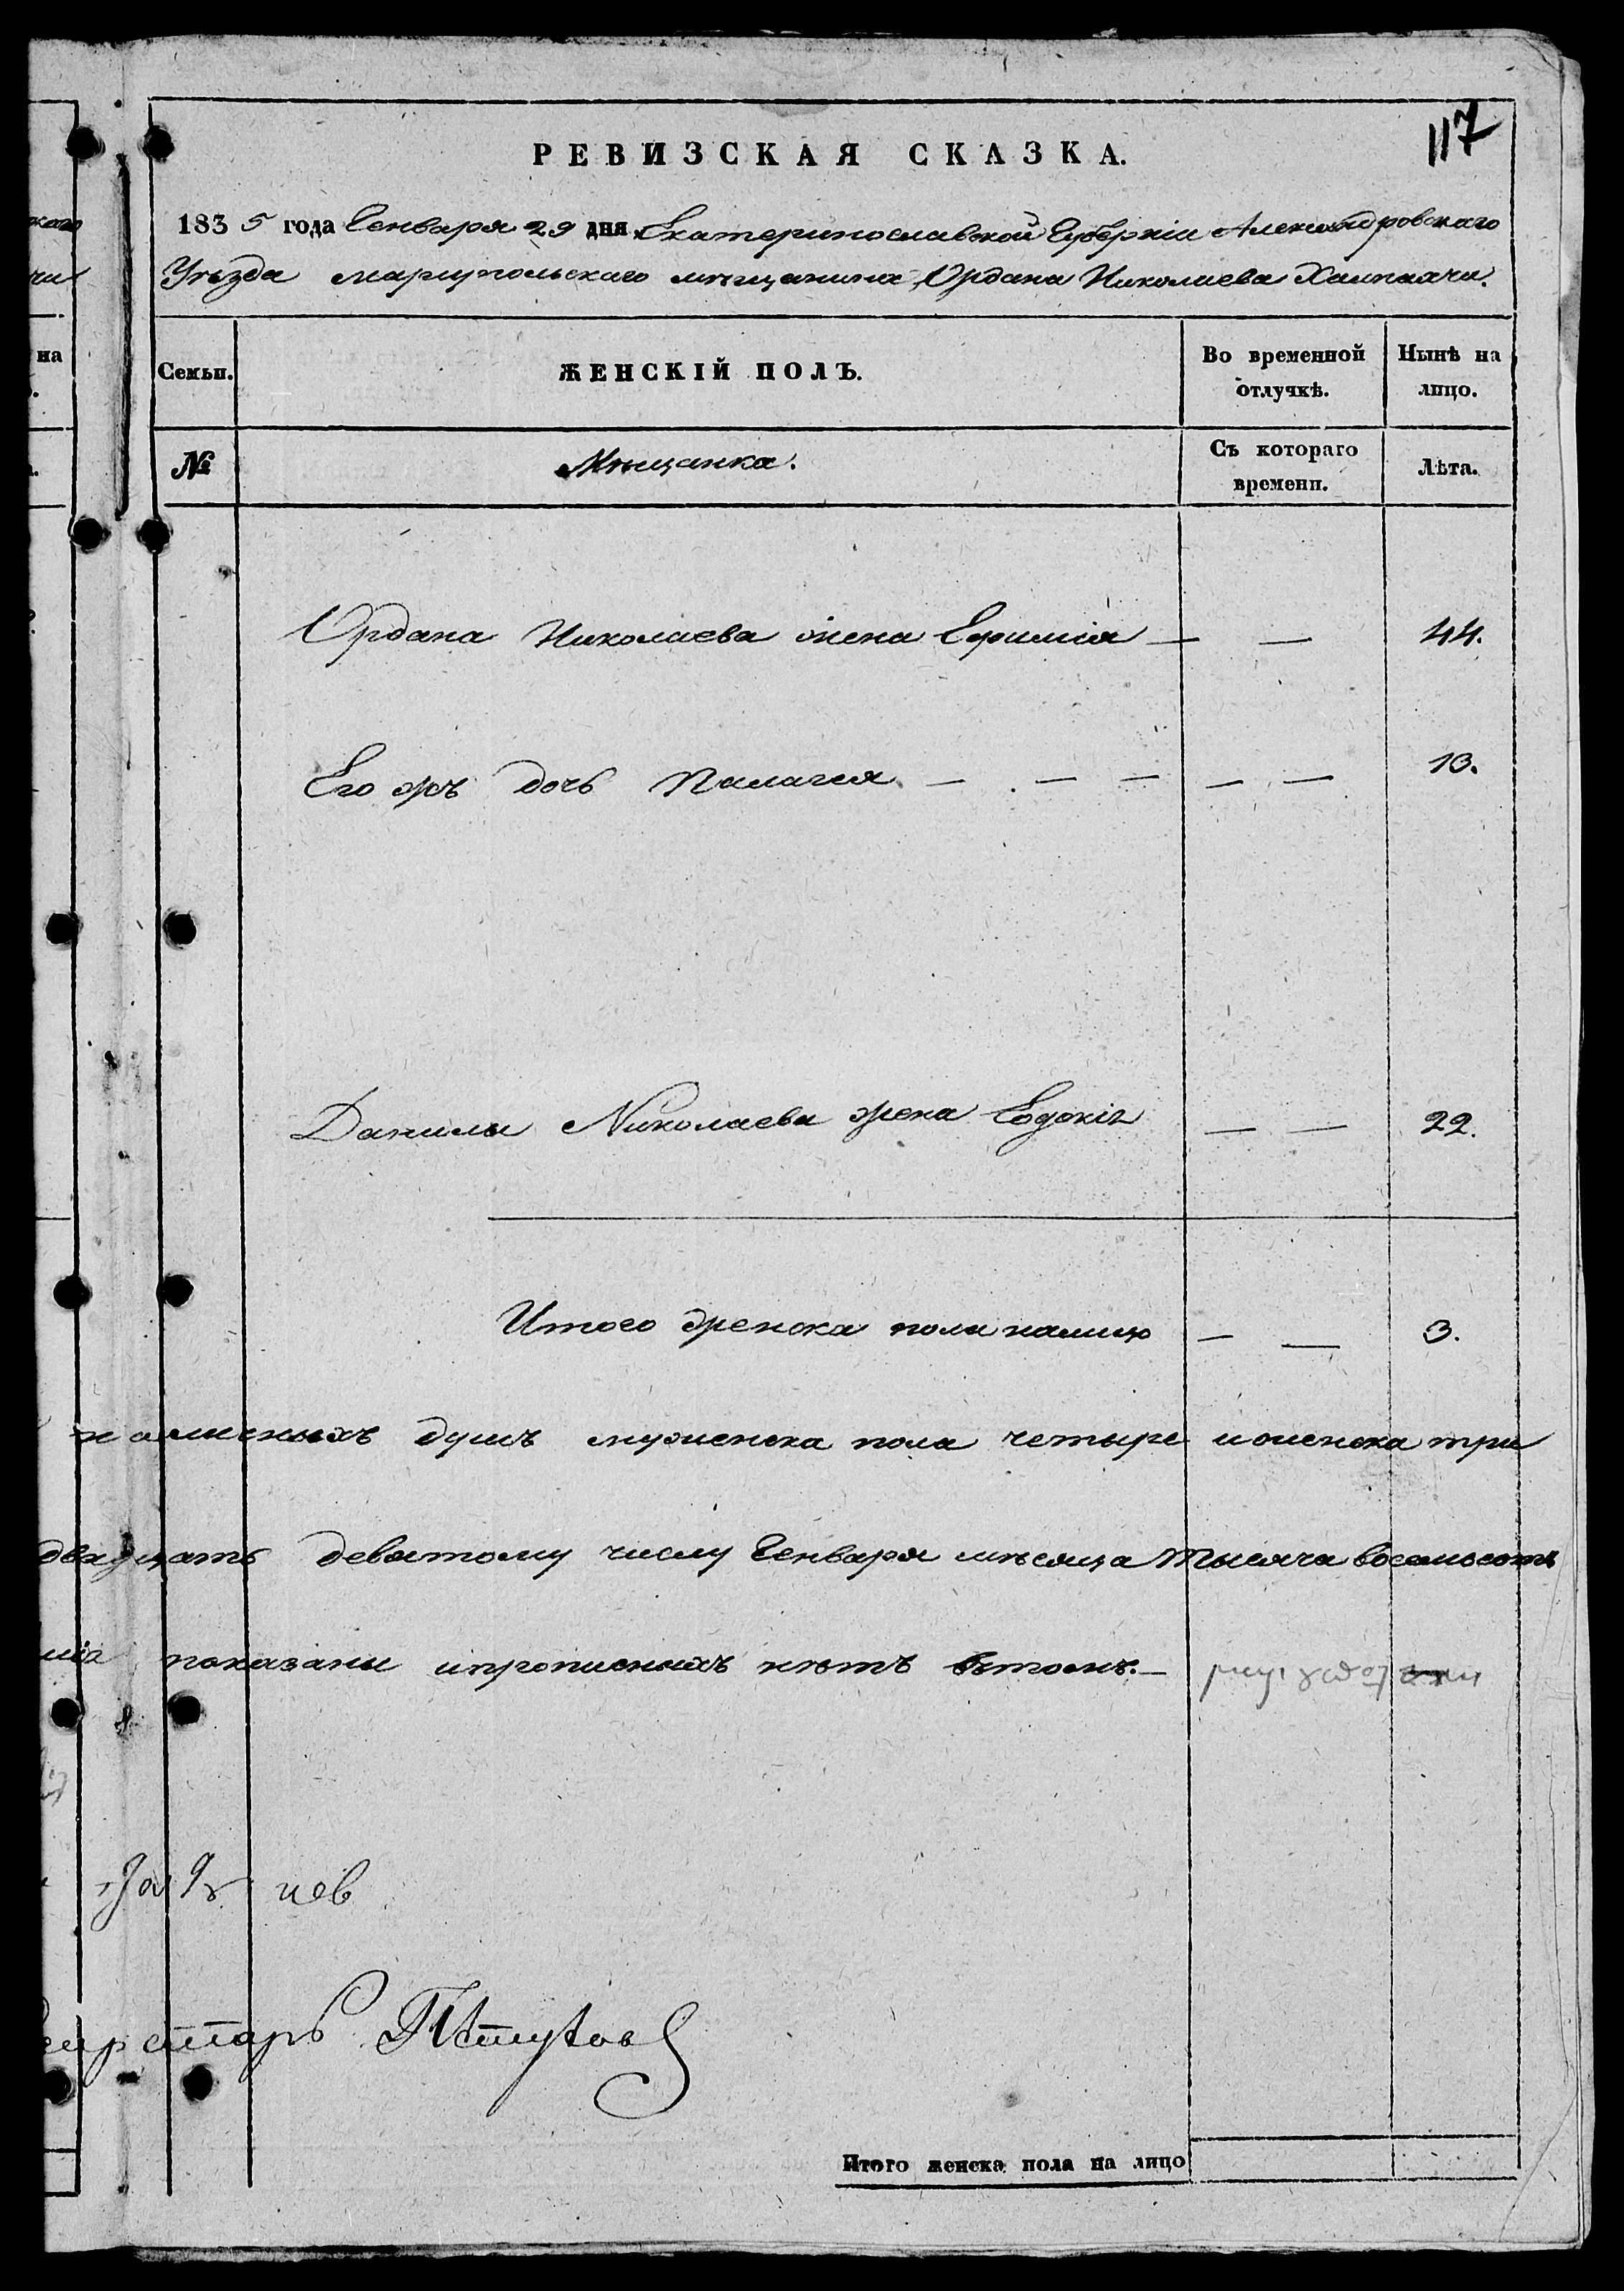 117
РЕВИЗСКАЯ СКАЗКА.
1835 года Генваря 29 дня Екатеринославской Губернiи Александровскаго
Уѣзда мариупольскаго мѣщанина Юрдана Николаева Халпахчи.
каго
чи
на
Семьи.
ЖЕНСКIЙ ПОЛЪ.
Во временной отлучкѣ.
Нынѣ на лицо.
№
Мѣщанка.
Съ котораго времени.
Лѣта.
Юрдана Николаева жена Ефимiя — — 44.
Его жъ дочь Палагея — — — — — 13.
Данилы Николаева жена Евдокiя — — 22.
Итого женска пола налицо — — 3.
наличныхъ душъ мужеска пола четыре иженска три
двадцать девятому числу Генваря мѣсяца тысяча восемьсотъ
показаны ипрописныхъ нѣтъ вътомъ. —
чев
Секретарь
Итого женска пола на лицо